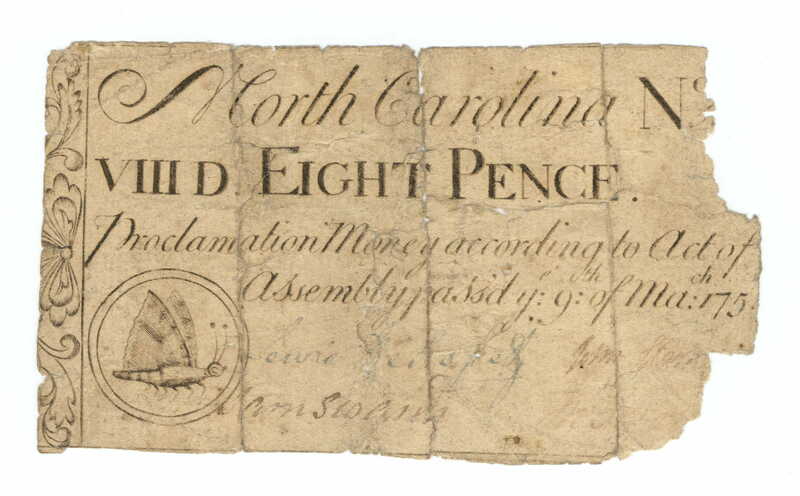 North Carolina No
VIII D. EIGHT PENCE.
Proclamation Money according to Act of
Assembly pass'd ye: 9th: of Mach: 175
Lewis